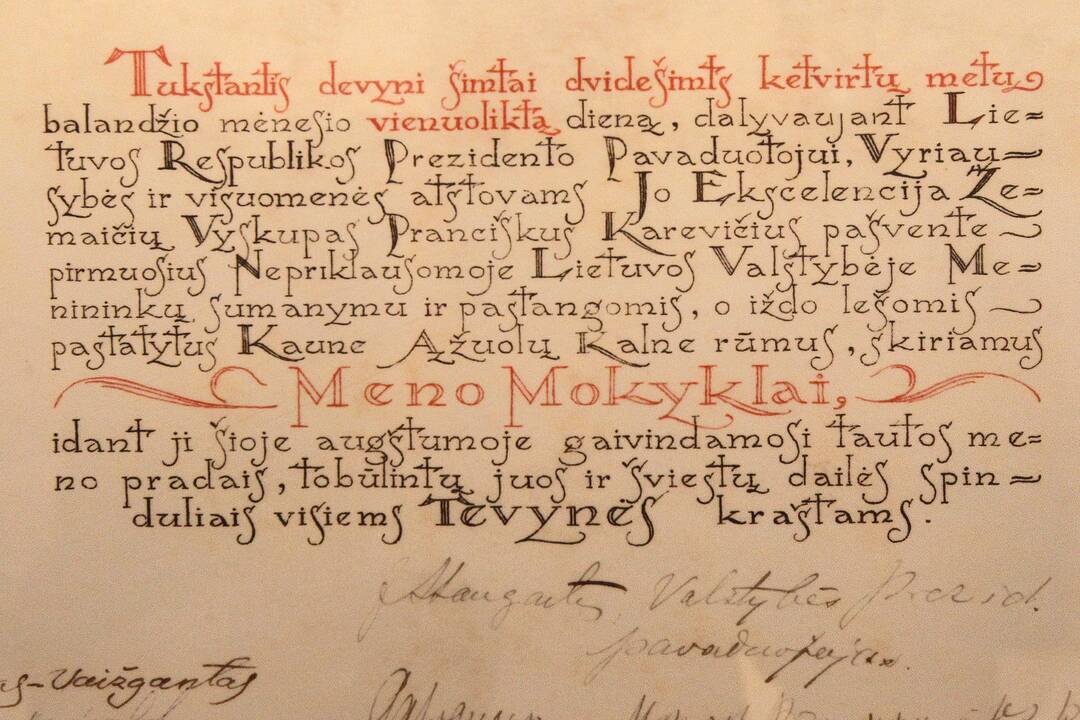 Tukstantis devyni šimtai dvidešimts ketvirtų metų
balandžio mėnesio vienuoliktą dieną, dalyvaujant Lie=
tuvos Respublikos Prezidento Pavaduotojui, Vyriau=
sybės ir visuomenės atstovams Jo Ekscelencija Že=
maičių Vyskupas Pranciškus Karevičius pašvente
pirmuosius Nepriklausomoje Lietuvos Valstybėje Me=
nininkų sumanymu ir pastangomis, o iždo lešomis
pastatytus Kaune Ąžuolų Kalne rūmus, skiriamus
Meno Mokyklai,
idant ji šioje augštumoje gaivindamosi tautos me=
no pradais, tobūlintų juos ir šviestų dailės spin=
duliais visiems Tėvynės kraštams.
Valstybės Prezid.
pavaduotojas.
as-Vaižgantas